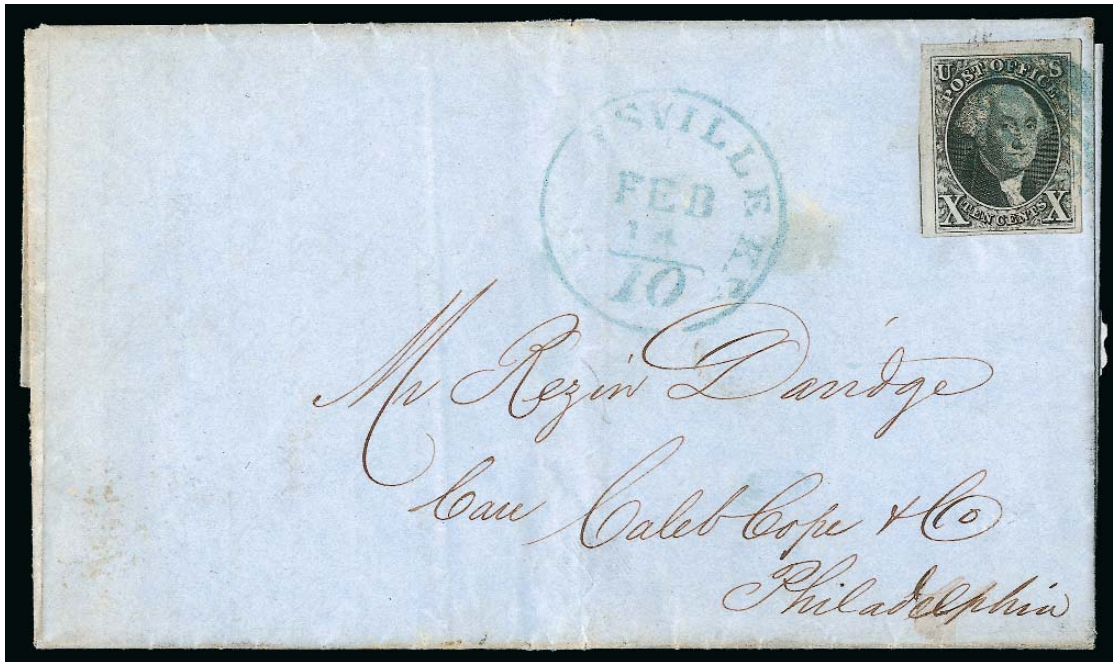 U S
POST OFFICE
X TEN CENTS X
ISVILLE KY
FEB
14
10
Mr Rezin Davidge
Care Caleb Cope & Co
Philadelphia